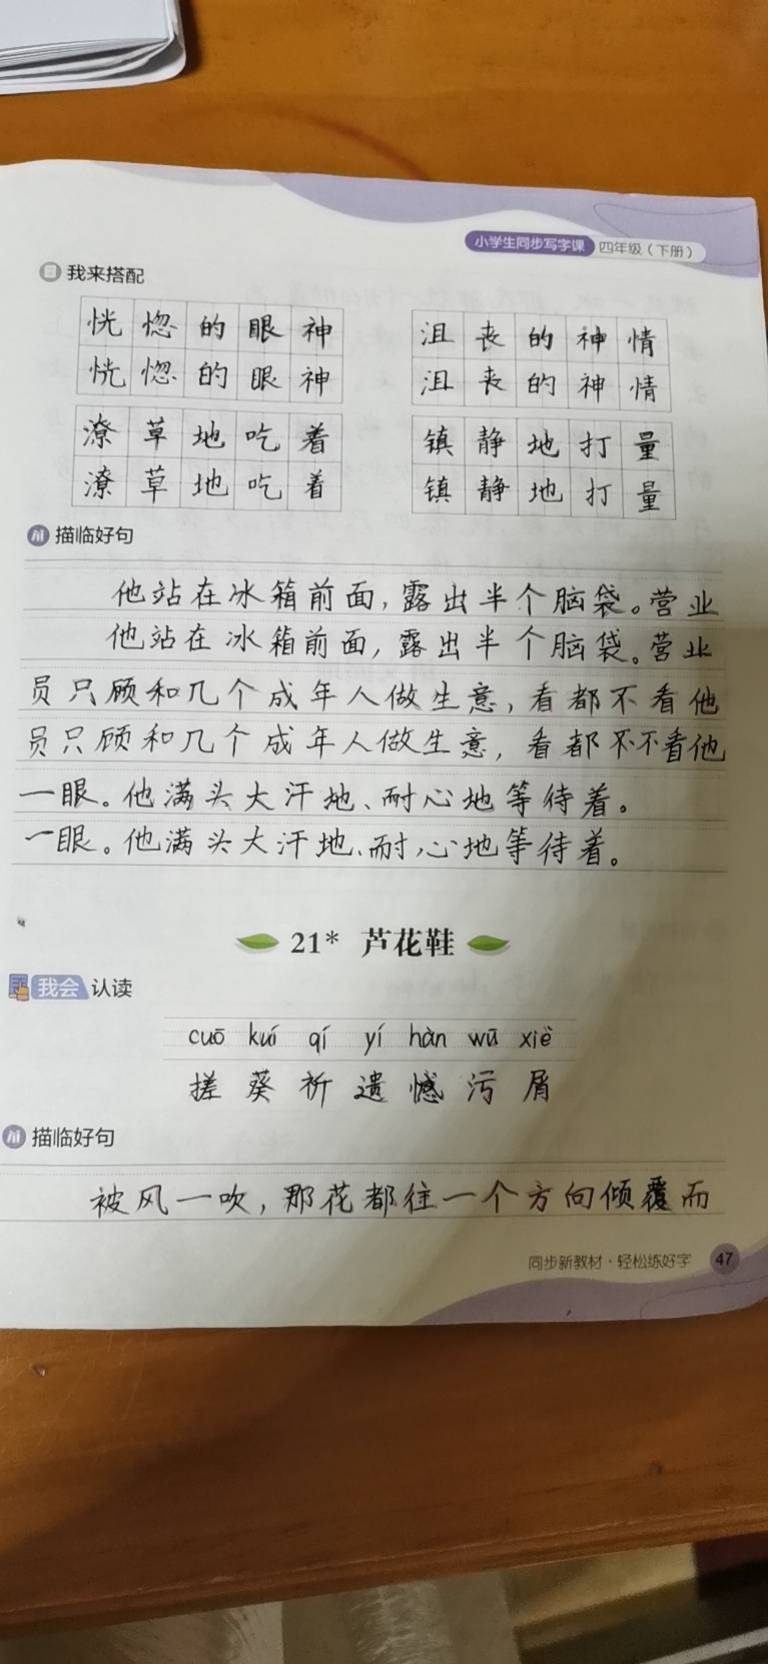 小学生同步写字课 四年级（下册）
我来搭配
恍惚的眼神 沮丧的神情
恍惚的眼神 沮丧的神情
潦草地吃着 镇静地打量
潦草地吃着 镇静地打量
描临好句
他站在冰箱前面，露出半个脑袋。营业
他站在冰箱前面，露出半个脑袋。营业
员只顾和几个成年人做生意，看都不看他
员只顾和几个成年人做生意，看都不不看他
一眼。他满头大汗地、耐心地等待着。
一眼。他满头大汗地、耐心地等待着。
21* 芦花鞋
我会 认读
cuō kuí qí yí hàn wū xiè
搓 葵 祈 遗 憾 污 屑
描临好句
被风一吹，那花都往一个方向倾覆而
同步新教材·轻松练好字 47